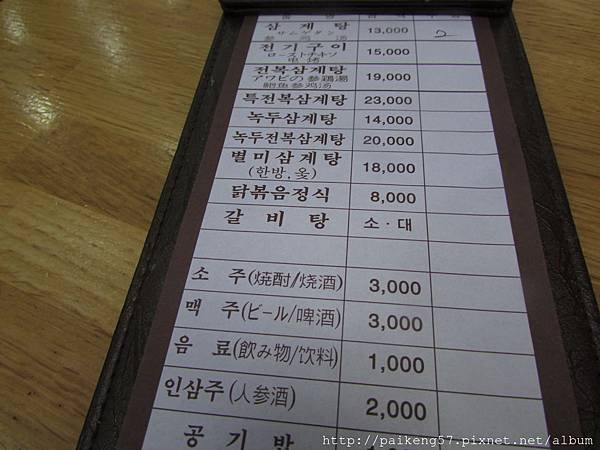 삼 계 탕 13,000 2
サムゲタン
参 鸡 汤
전 기 구 이 15,000
ローストチキン
电 烤
전복삼계탕 19,000
アワビの参鶏湯
鲍鱼参鸡汤
특전복삼계탕 23,000
녹두삼계탕 14,000
녹두전복삼계탕 20,000
별미삼계탕 18,000
(한방, 옻)
닭볶음정식 8,000
갈 비 탕 소 · 대
소 주 (焼酎/烧酒) 3,000
맥 주 (ビール/啤酒) 3,000
음 료 (飲み物/饮料) 1,000
인삼주 (人参酒) 2,000
공 기 밥
http://paikeng57.pixnet.net/album